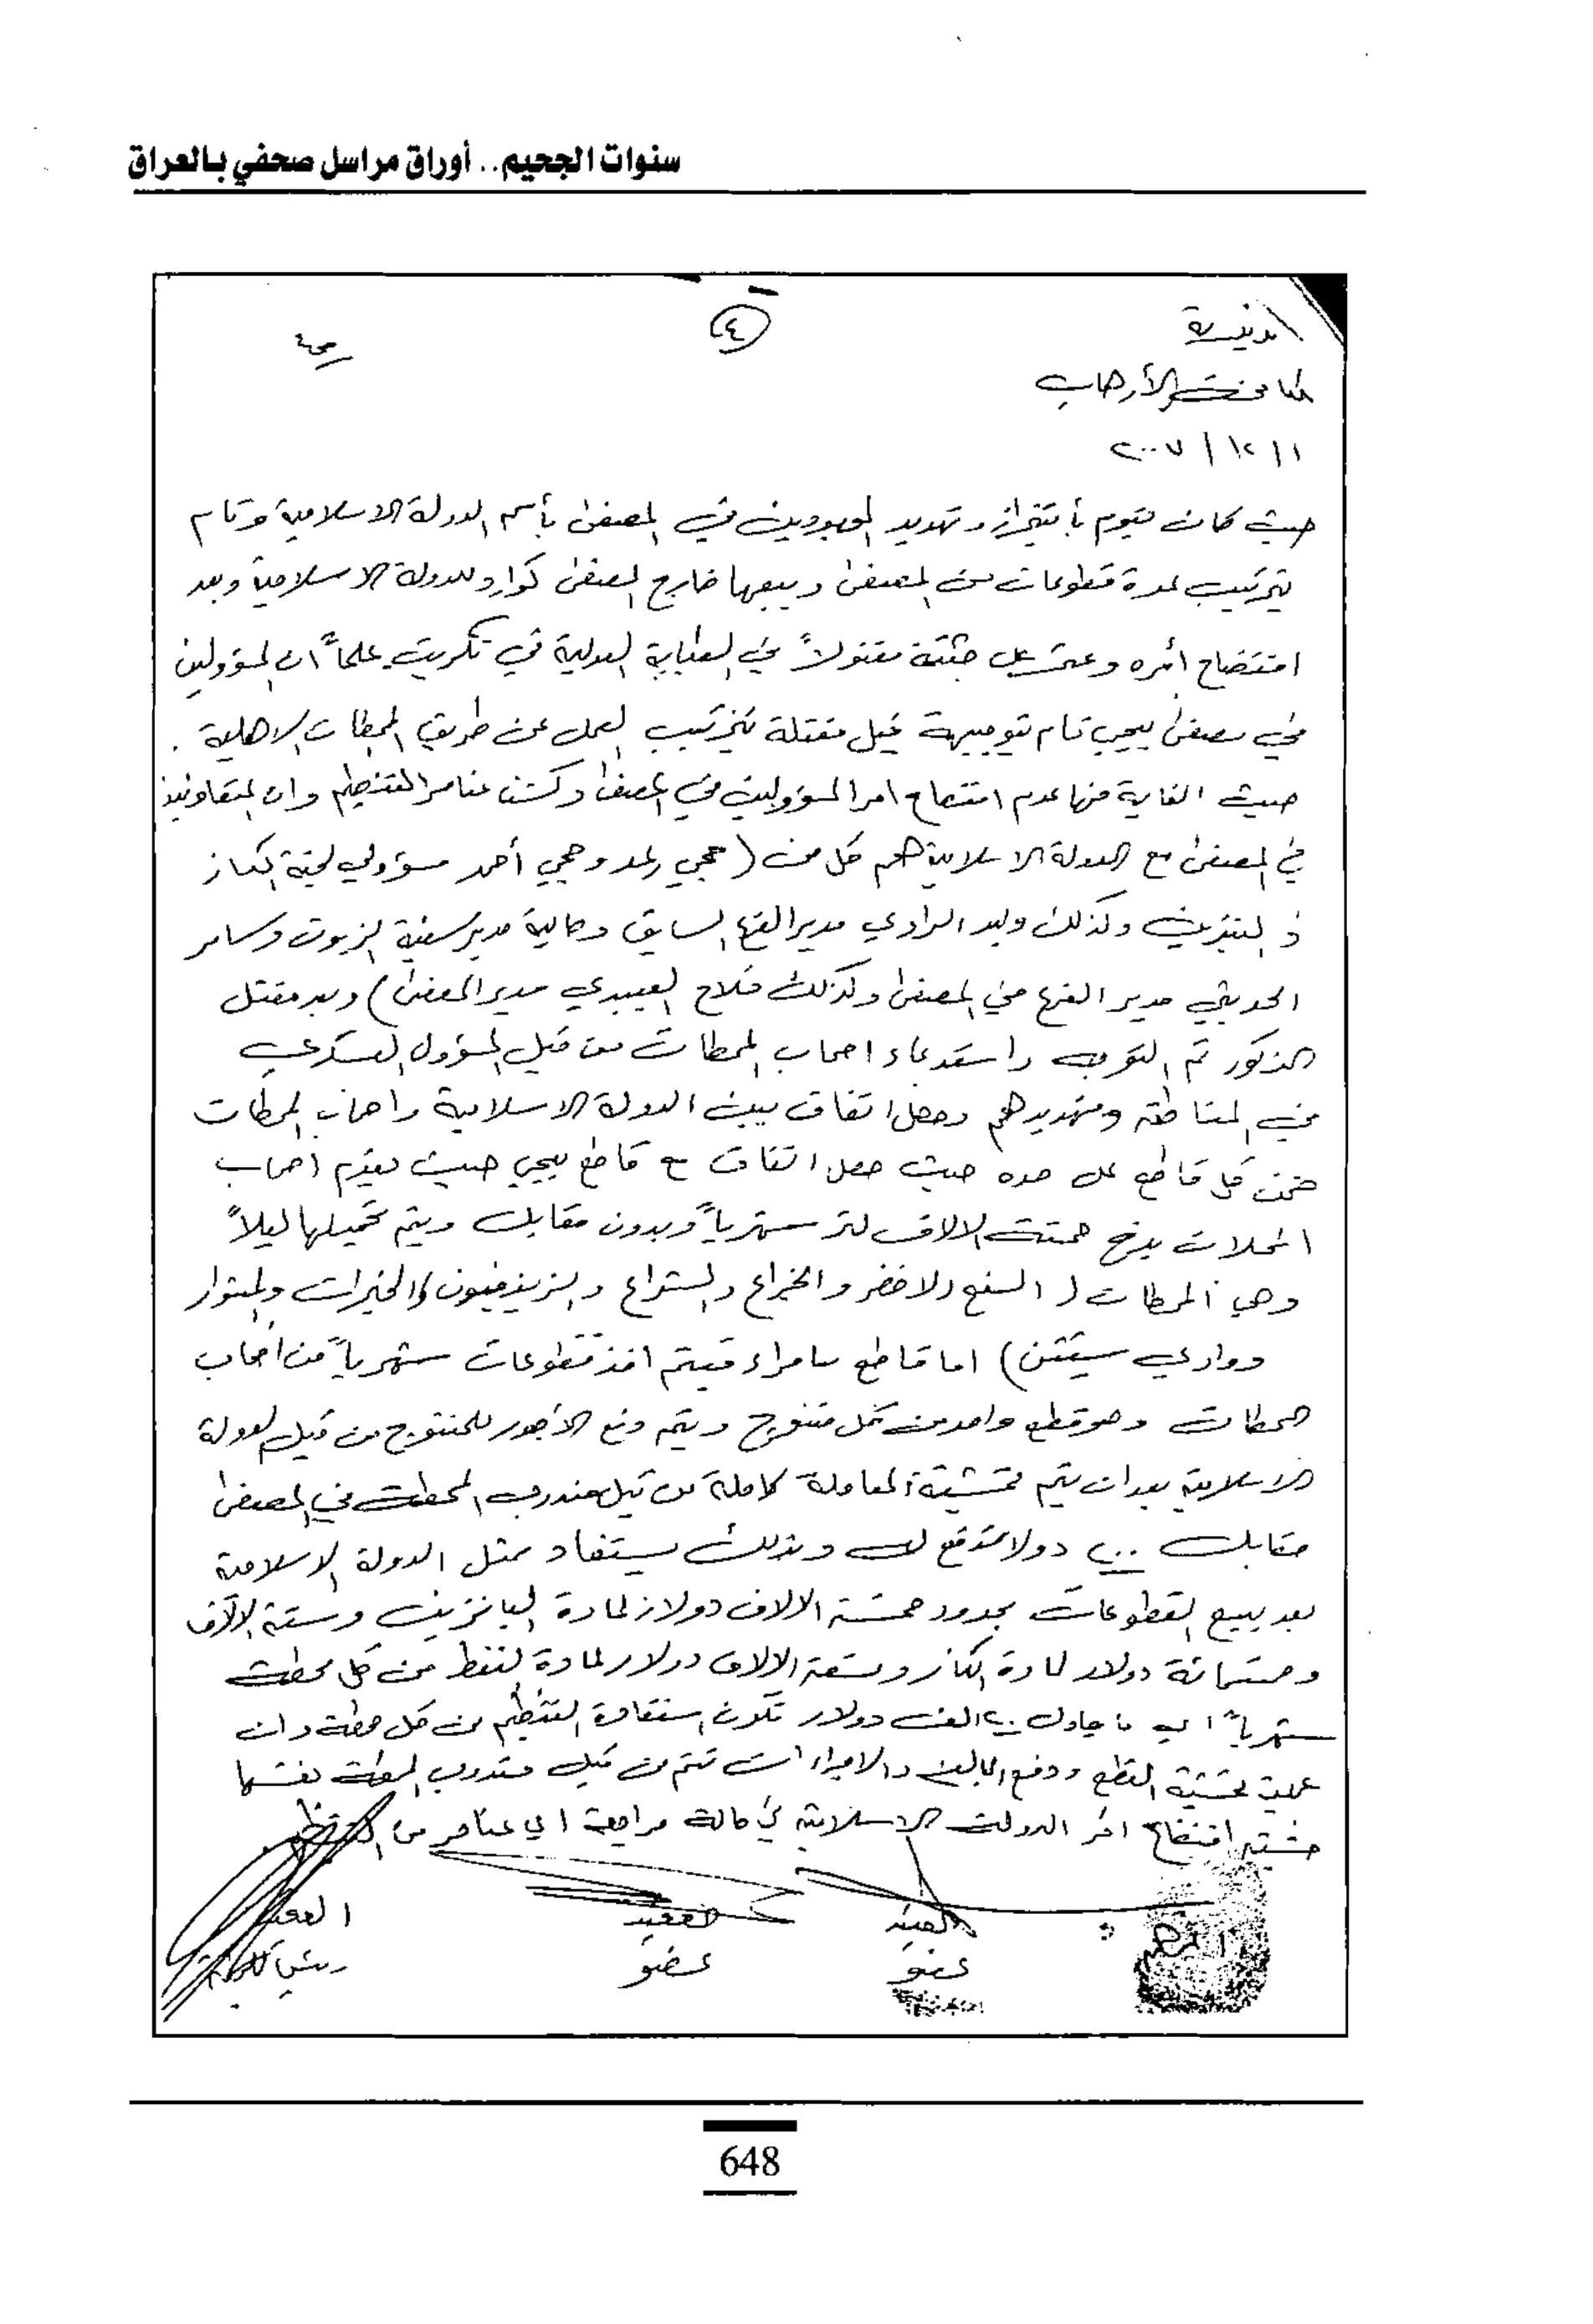 سنوات الجحيم.. أوراق مراسل صحفي بالعراق
٤
مكافحة الأرهاب
١١ / ١٢ / ٢٠٠٧
حيث كان يقوم بأبتزاز وتهديد الموجودين في المصفى بأسم الدولة الاسلامية وقام
بترتيب عدة قطوعات من المصفى وبيعها خارج المصفى كوارد للدولة الاسلامية وبعد
افتضاح أمره وعثر على جثته مقتولاً في البوابة الدولية في تكريت علماً ان المسؤولين
في مصفى بيجي قام بتوجيهه قبل مقتله بترتيب العمل عن طريق المحطات الاهلية .
حيث الغاية منها عدم افتضاح امر المسؤولين في المصفى وكشف عناصر التنظيم وان المتعاونين
في المصفى مع الدولة الاسلامية هم كل من ( حجي رعد وحجي أحمد مسؤولي لجنة الكاز
والبنزين وكذلك وليد الراوي مدير القطع السابق وحالياً مدير شعبة الزيوت وسامر
الحديثي مدير القطع في المصفى وكذلك فلاح العبيدي مدير المصفى ) وبعد مقتل
المذكور تم التعرف واستدعاء اصحاب المحطات من قبل المسؤول العسكري
في المناطق وتهديدهم وحصل اتفاق بين الدولة الاسلامية واصحاب المحطات
ضمن كل قاطع على حده حيث حصل اتفاق مع قاطع بيجي حيث يقوم اصحاب
المحلات بدفع خمسة الالاف لتر شهرياً وبدون مقابل ويتم تحميلها ليلاً
وهي المحطات ( السفح الاخضر والخزاع والخيرات
ووادي ) اما قاطع سامراء فيتم اخذ قطوعات شهرياً من اصحاب
المحطات وهو قطع واحد من كل منتوج ويتم دفع الأجور للمنتوج من قبل الدولة
الاسلامية بعد ان يتم تمشية المعاملة كاملة من قبل مندوب المحطة في المصفى
مقابل ٢٠٠ دولار تدفع له وبذلك يستفاد ممثل الدولة الاسلامية
بعد بيع القطوعات بحدود خمسة الالاف دولار لمادة البانزين وستة الالاف
وخمسمائة دولار لمادة الكاز وتسعة الالاف دولار لمادة النفط من كل محطة
شهرياً اي ما يعادل ٢٠ الف دولار تكون استفادة التنظيم من كل محطة وان
عملية تمشية القطع ودفع المبالغ والاجراءات تتم من قبل مندوب المحطة نفسها
خشية افتضاح امر الدولة الاسلامية في حالة مراجعة اي عناصر من التنظيم
العقيد
العقيد
عضو
عضو
648